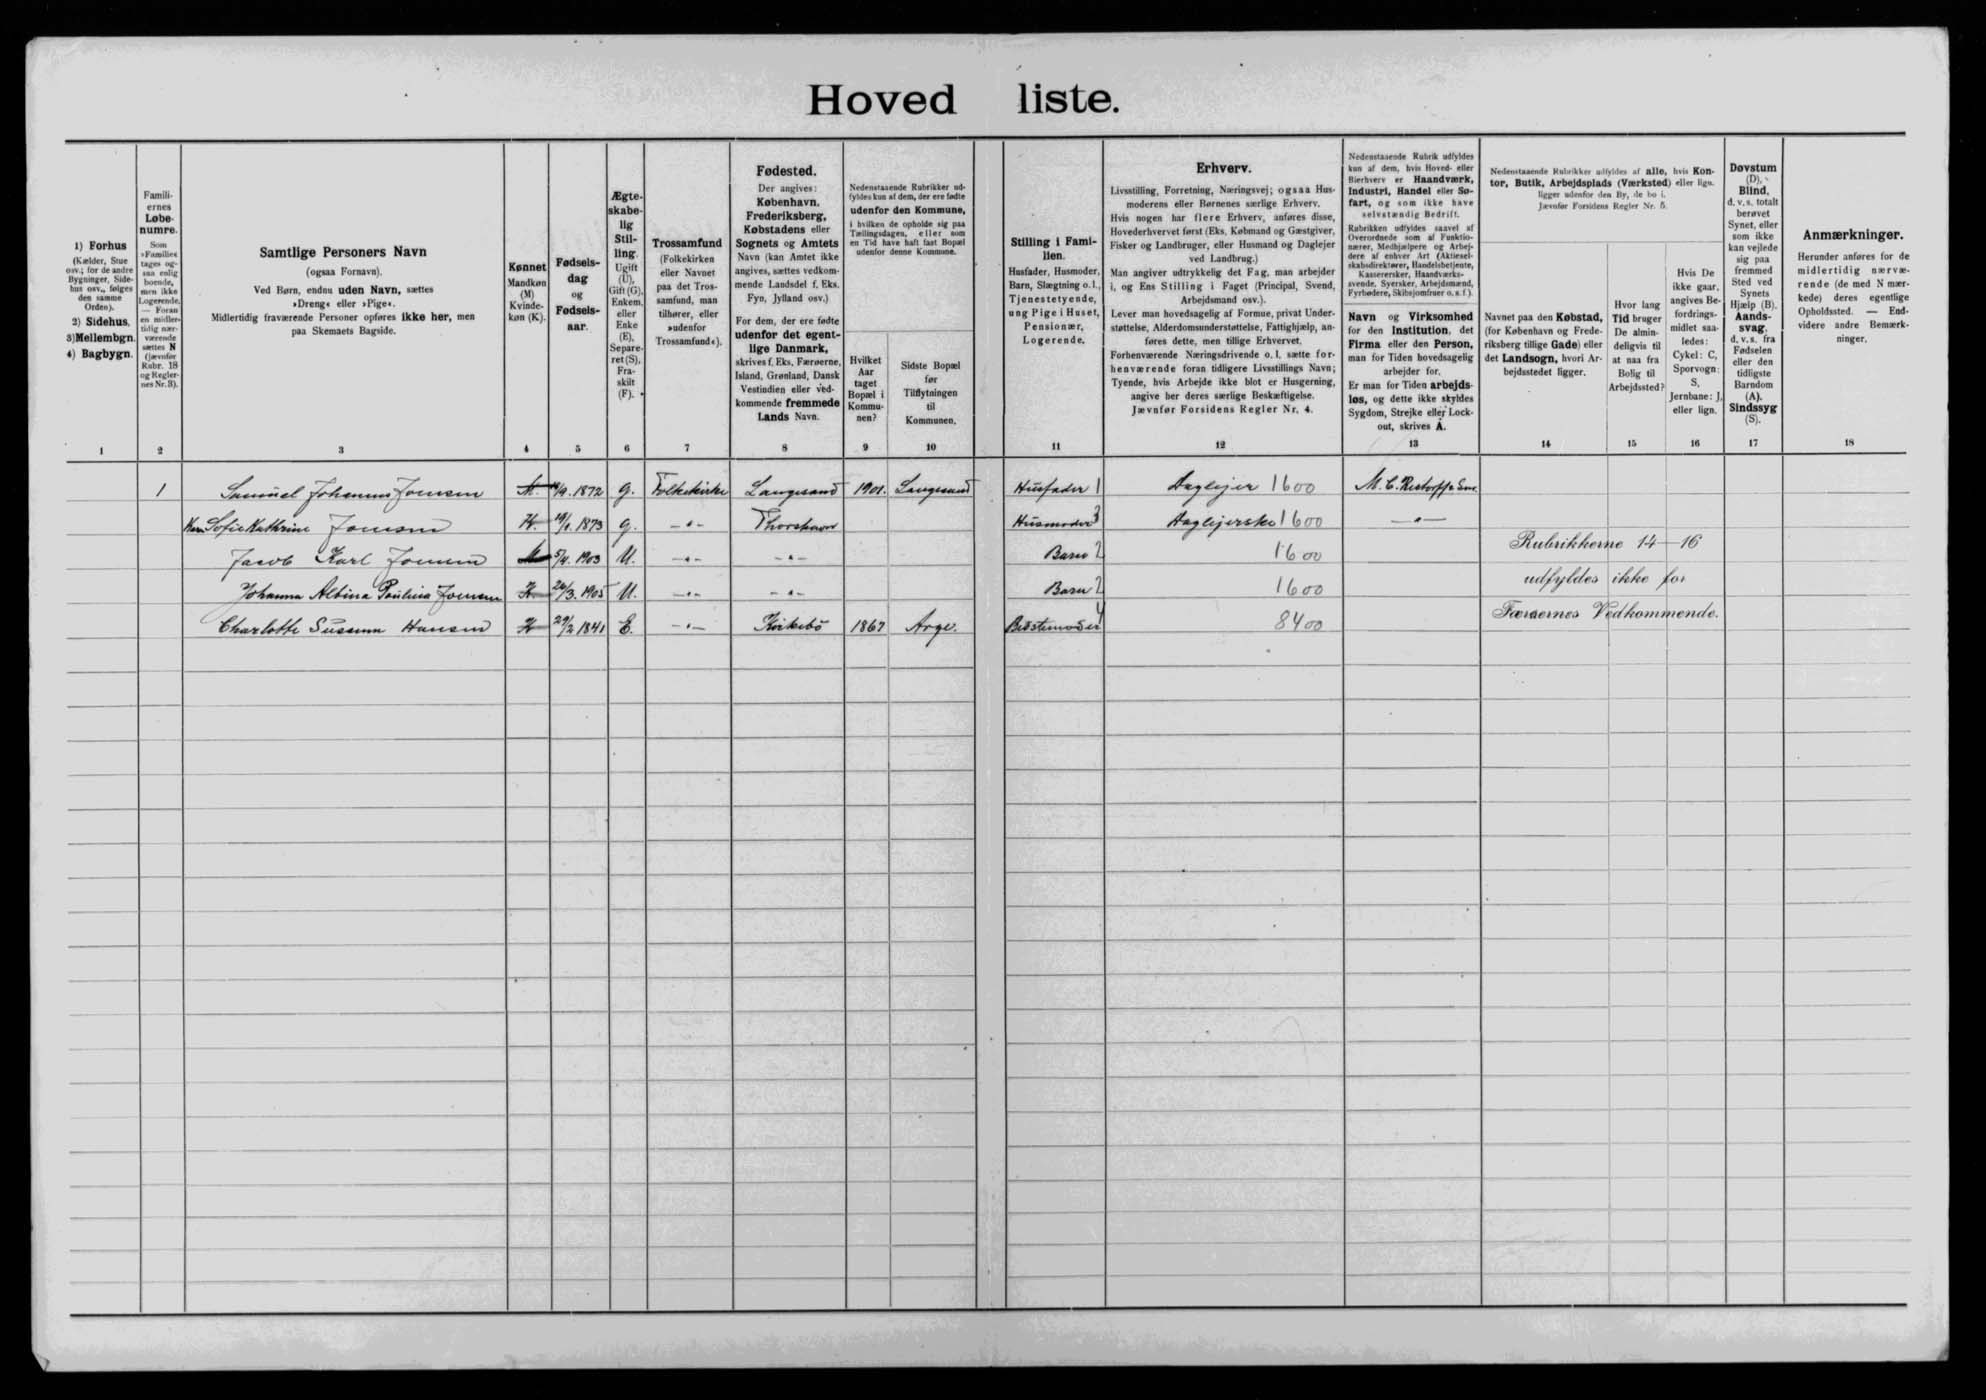 Hoved liste.
1) Forhus
(Kælder, Stue
osv.; for de andre
Bygninger, Side-
hus osv., følges
den samme
Orden).
2) Sidehus,
3) Mellembgn.
4) Bagbygn.
1
Famili-
ernes
Løbe-
numre.
Som
»Familie«
tages og-
saa enlig
boende,
men ikke
Logerende.
— Foran
en midler-
tidig nær-
værende
sættes N
(jævnfør
Rubr. 18
og Regler-
nes Nr. 3).
2
Samtlige Personers Navn
(ogsaa Fornavn).
Ved Børn, endnu uden Navn, sættes
»Dreng« eller »Pige«.
Midlertidig fraværende Personer opføres ikke her, men
paa Skemaets Bagside.
3
Kønnet
Mandkøn
(M)
Kvinde-
køn (K).
4
Fødsels-
dag
og
Fødsels-
aar.
5
Ægte-
skabe-
lig
Stil-
ling.
Ugift
(U),
Gift (G),
Enkem.
eller
Enke
(E),
Separe-
ret (S),
Fra-
skilt
(F).
6
Trossamfund
(Folkekirken
eller Navnet
paa det Tros-
samfund, man
tilhører, eller
»udenfor
Trossamfund«).
7
Fødested.
Der angives:
København,
Frederiksberg,
Købstadens eller
Sognets og Amtets
Navn (kan Amtet ikke
angives, sættes vedkom-
mende Landsdel f. Eks.
Fyn, Jylland osv.)
For dem, der ere fødte
udenfor det egent-
lige Danmark,
skrives f. Eks. Færøerne,
Island, Grønland, Dansk
Vestindien eller ved-
kommende fremmede
Lands Navn.
8
Nedenstaaende Rubrikker ud-
fyldes kun af dem, der ere fødte
udenfor den Kommune,
i hvilken de opholde sig paa
Tællingsdagen, eller som
en Tid have haft fast Bopæl
udenfor denne Kommune.
Hvilket
Aar
taget
Bopæl i
Kommu-
nen?
9
Sidste Bopæl
før
Tilflytningen
til
Kommunen.
10
Stilling i Fami-
lien.
Husfader, Husmoder,
Barn, Slægtning o. l.,
Tjenestetyende,
ung Pige i Huset,
Pensionær,
Logerende.
11
Erhverv.
Livsstilling, Forretning, Næringsvej; ogsaa Hus-
moderens eller Børnenes særlige Erhverv.
Hvis nogen har flere Erhverv, anføres disse,
Hovederhvervet først (Eks. Købmand og Gæstgiver,
Fisker og Landbruger, eller Husmand og Daglejer
ved Landbrug.)
Man angiver udtrykkelig det Fag, man arbejder
i, og Ens Stilling i Faget (Principal, Svend,
Arbejdsmand osv.).
Lever man hovedsagelig af Formue, privat Under-
støttelse, Alderdomsunderstøttelse, Fattighjælp, an-
føres dette, men tillige Erhvervet.
Forhenværende Næringsdrivende o. l. sætte for-
henværende foran tidligere Livsstillings Navn;
Tyende, hvis Arbejde ikke blot er Husgerning,
angive her deres særlige Beskæftigelse.
Jævnfør Forsidens Regler Nr. 4.
12
Nedenstaaende Rubrik udfyldes
kun af dem, hvis Hoved- eller
Bierhverv er Haandværk,
Industri, Handel eller Sø-
fart, og som ikke have
selvstændig Bedrift.
Rubrikken udfyldes saavel af
Overordnede som af Funktio-
nærer, Medhjælpere og Arbej-
dere af enhver Art (Aktiesel-
skabsdirektører, Handelsbetjente,
Kasserersker, Haandværks-
svende, Syersker, Arbejdsmænd,
Fyrbødere, Skibsjomfruer o. s. f.).
Navn og Virksomhed
for den Institution, det
Firma eller den Person,
man for Tiden hovedsagelig
arbejder for.
Er man for Tiden arbejds-
løs, og dette ikke skyldes
Sygdom, Strejke eller Lock-
out, skrives A.
13
Nedenstaaende Rubrikker udfyldes af alle, hvis Kon-
tor, Butik, Arbejdsplads (Værksted) eller lign.
ligger udenfor den By, de bo i.
Jævnfør Forsidens Regler Nr. 5.
Navnet paa den Købstad,
(for København og Frede-
riksberg tillige Gade) eller
det Landsogn, hvori Ar-
bejdsstedet ligger.
14
Hvor lang
Tid bruger
De almin-
deligvis til
at naa fra
Bolig til
Arbejdssted?
15
Hvis De
ikke gaar,
angives Be-
fordrings-
midlet saa-
ledes:
Cykel: C,
Sporvogn:
S,
Jernbane: J,
eller lign.
16
Døvstum
(D),
Blind,
d. v. s. totalt
berøvet
Synet, eller
som ikke
kan vejlede
sig paa
fremmed
Sted ved
Synets
Hjælp (B),
Aands-
svag,
d. v. s. fra
Fødselen
eller den
tidligste
Barndom
(A).
Sindssyg
(S).
17
Anmærkninger.
Herunder anføres for de
midlertidig nærvæ-
rende (de med N mær-
kede) deres egentlige
Opholdssted. — End-
videre andre Bemærk-
ninger.
18
1 Samuel Johannes Joensen M. /9. 1872 G. Folkekirke Langesand 1901. Langesand Husfader 1 Daglejer 1600 M. C. Restorff & Sønr
Sofie Kathrine Joensen K. 19/1. 1873 G. -"- Thorshavn Husmoder 3 Daglejerske 1600 -"-
Jacob Karl Joensen M 5/4. 1903 U. -"- -"- Barn 2 1600
Johanna Albina Paulina Joensen K 24/3. 1905 U. -"- -"- Barn 2 1600
Charlotte Susanna Hansen K 29/2 1841 E. -"- Kirkebø 1867 Arge. Bedstemoder 4 8400
Rubrikkerne 14—16
udfyldes ikke for
Færøernes Vedkommende.